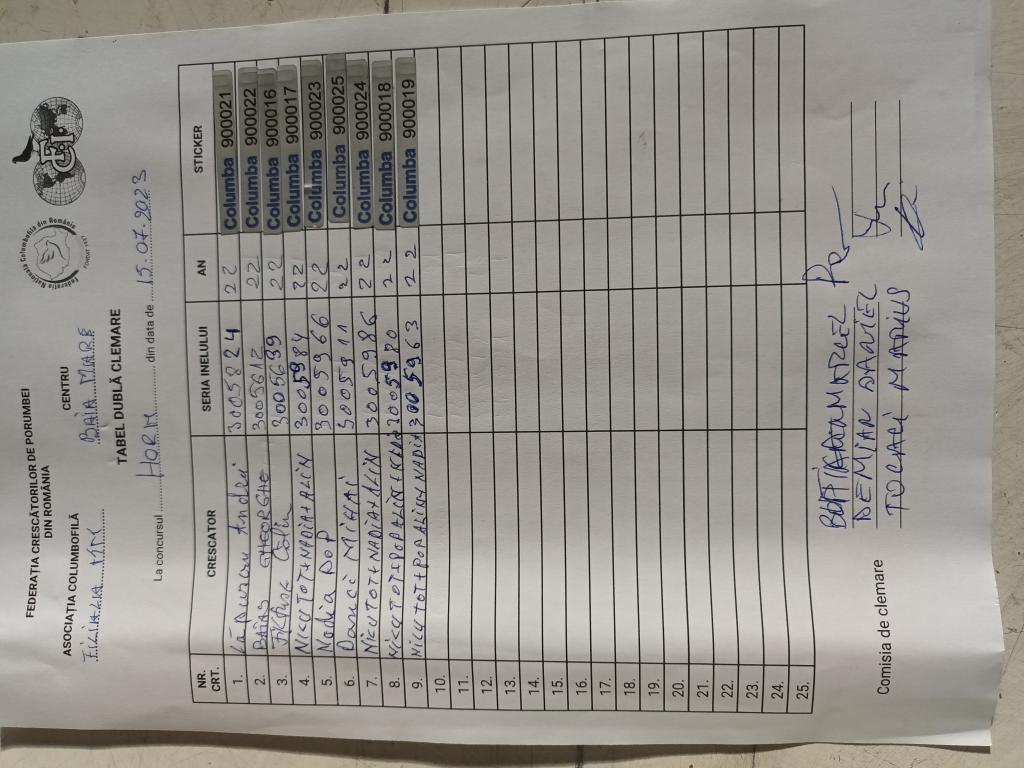 FEDERAȚIA CRESCĂTORILOR DE PORUMBEI
DIN ROMÂNIA
ASOCIAȚIA COLUMBOFILĂ
CENTRU
BAIA MARE
TABEL DUBLĂ CLEMARE
La concursul HORN din data de 15.07.2023
Federația Națională Columbofilă din România
NR. CRT. CRESCATOR SERIA INELULUI AN STICKER
1. Lăpușcu Andrei 3005824 22 Columba 900021
2. GHEORGHE 3005612 22 Columba 900022
3. Călin 3005639 22 Columba 900016
4. NICU TOT+NADIA+ALIN 3005984 22 Columba 900017
5. Nadia POP 3005966 22 Columba 900023
6. Danci MIHAI 3005911 22 Columba 900025
7. NICU TOT+NADIA+ALIN 3005986 22 Columba 900024
8. NICU TOT+POP ALIN 3005980 22 Columba 900018
9. NICU TOT+POP ALIN+NADIA 3005963 22 Columba 900019
10.
11.
12.
13.
14.
15.
16.
17.
18.
19.
20.
21.
22.
23.
24.
25.
Comisia de clemare
DEMIAN DANIEL
TOCACI MARIUS